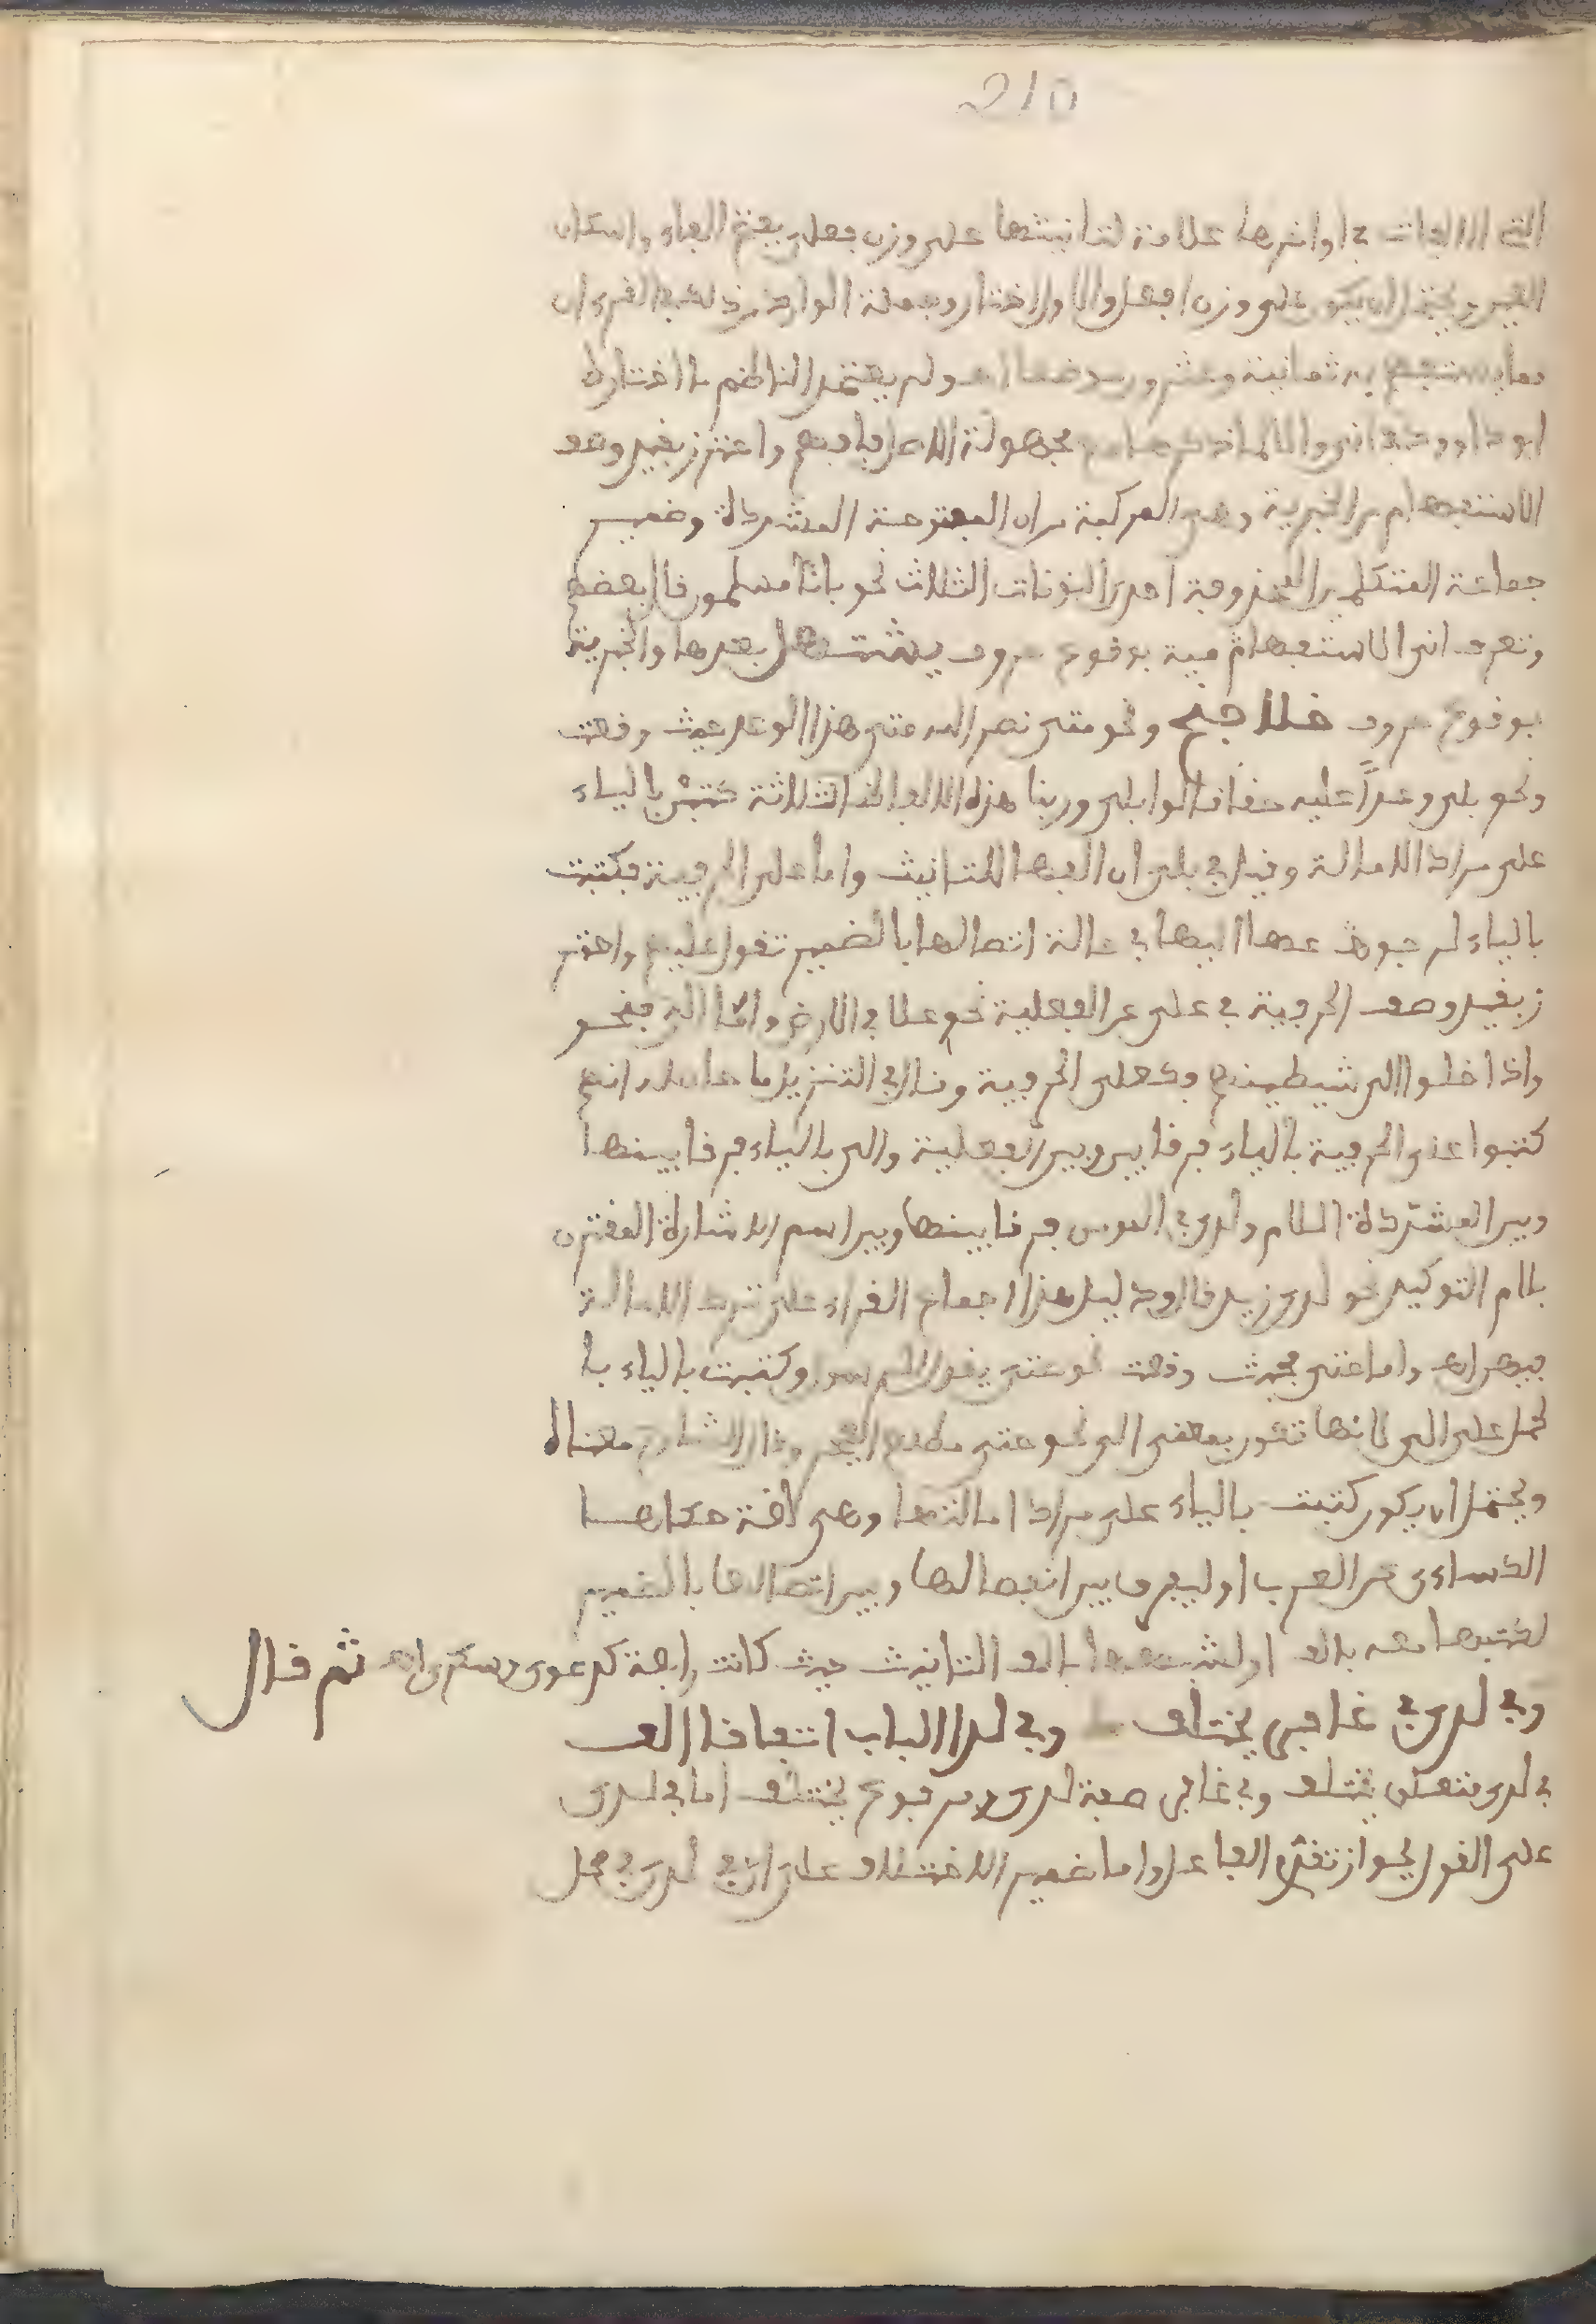 210
التى الالفات فى اواخرها علامة لتانيثها على وزن فعلى بفتح الفاء واسكان
العين ويحتمل ان يكون على وزن افعل والاول اختار وجملة الوارد من ذلك فى القرءان
مما يستفهم به ثمانية وعشرون موضعا اهـ ولم يعتمد الناظم ما اختاره
ابو داوود فى انى والا لما ذكرها مع مجهولة الاصل فافهم واحترز بقيد وصف
الاستفهام من الخبرية وهى المركبة من ان المفتوحة المشددة وضمير
جماعة المتكلمين المحذوفة احدى النونات الثلاث نحو بانا مسلمون قال بعضهم
وتعرف انى الاستفهامية بوقوع حروف بعدها والخبرية
بوقوع حروف ونحو متى نصر الله متى هذا الوعد حيث وقعت
ونحو بلى وعدا عليه حقا قالوا بلى وربنا هذه الالفاظ الثلاثة كتبن بالياء
على مراد الامالة وقيل فى بلى ان الفها للتانيث واما على الحرفية فكتبت
بالياء لرجوع الفها اليها فى حالة اتصالها بالضمير تقول عليهم واحتر
ز بقيد وصف الحرفية فى على عن الفعلية نحو علا فى الارض واما الى فنحو
واذا خلوا الى شيطينهم وكعلى الحرفية وقال فى التنزيل ما حاصله انهم
كتبوا على الحرفية بالياء فرقا بين وبين الفعلية والى بالياء فرقا بينها
وبين المشددة اللام ولدى فى المومن فرقا بينها وبين اسم الاشارة المقترن
بلام التوكيد نحو لدى زيد قال ودليل هذا اجماع القراء على ترك الامالة
فيهن اهـ واما حتى فحيث وقعت نحو حتى يقول الرسول وكتبت بالياء با
لحمل على الى لانها تكون بمعنى الى نحو حتى مطلع الفجر وقال الشارح معناه
ويحتمل ان يكون كتبت بالياء على مراد امالتها وهى لغة حكاها
الكساءى عن العرب او ليفرق بين انفصالها وبين اتصالها بالضمير
لكتبها معه بالف او لشبهها بالف التانيث حيث كانت رابعة كدعوى وسكرى اهـ ثم قال
وفى لدى فى غافر يختلف وفى لدا الباب اتفاقا الف
فى لدى متعلق يختلف وفى غافر صفة لدى ومرفوع يختلف اما فى لدى
على القول بجواز تقدم الفاعل واما ضمير الاختلاف على ان فى لدى فى محل